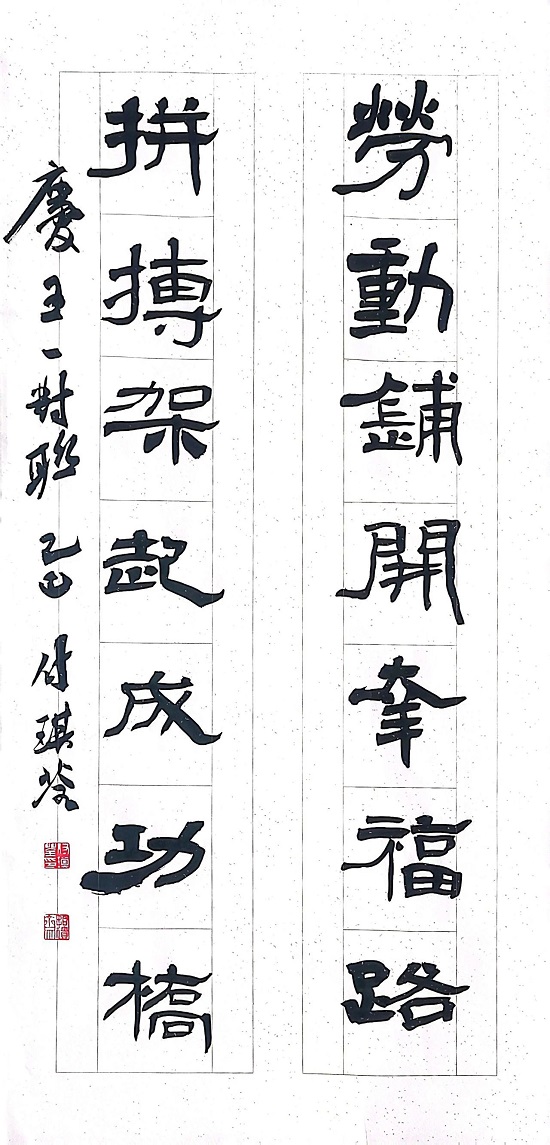 勞動鋪開幸福路
拼搏架起成功橋
慶五一對聯 乙巳 付琪瑩